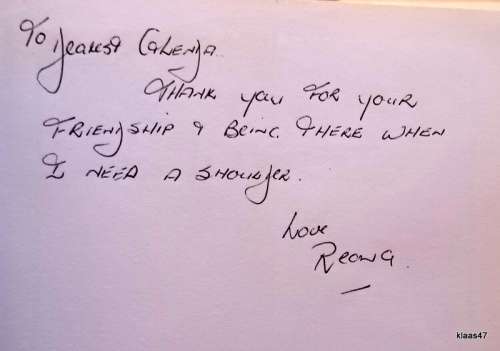 To Dearest Glenda
Thank you for your
Friendship & Being there when
I need a shoulder.
Love
Reona.
klaas47